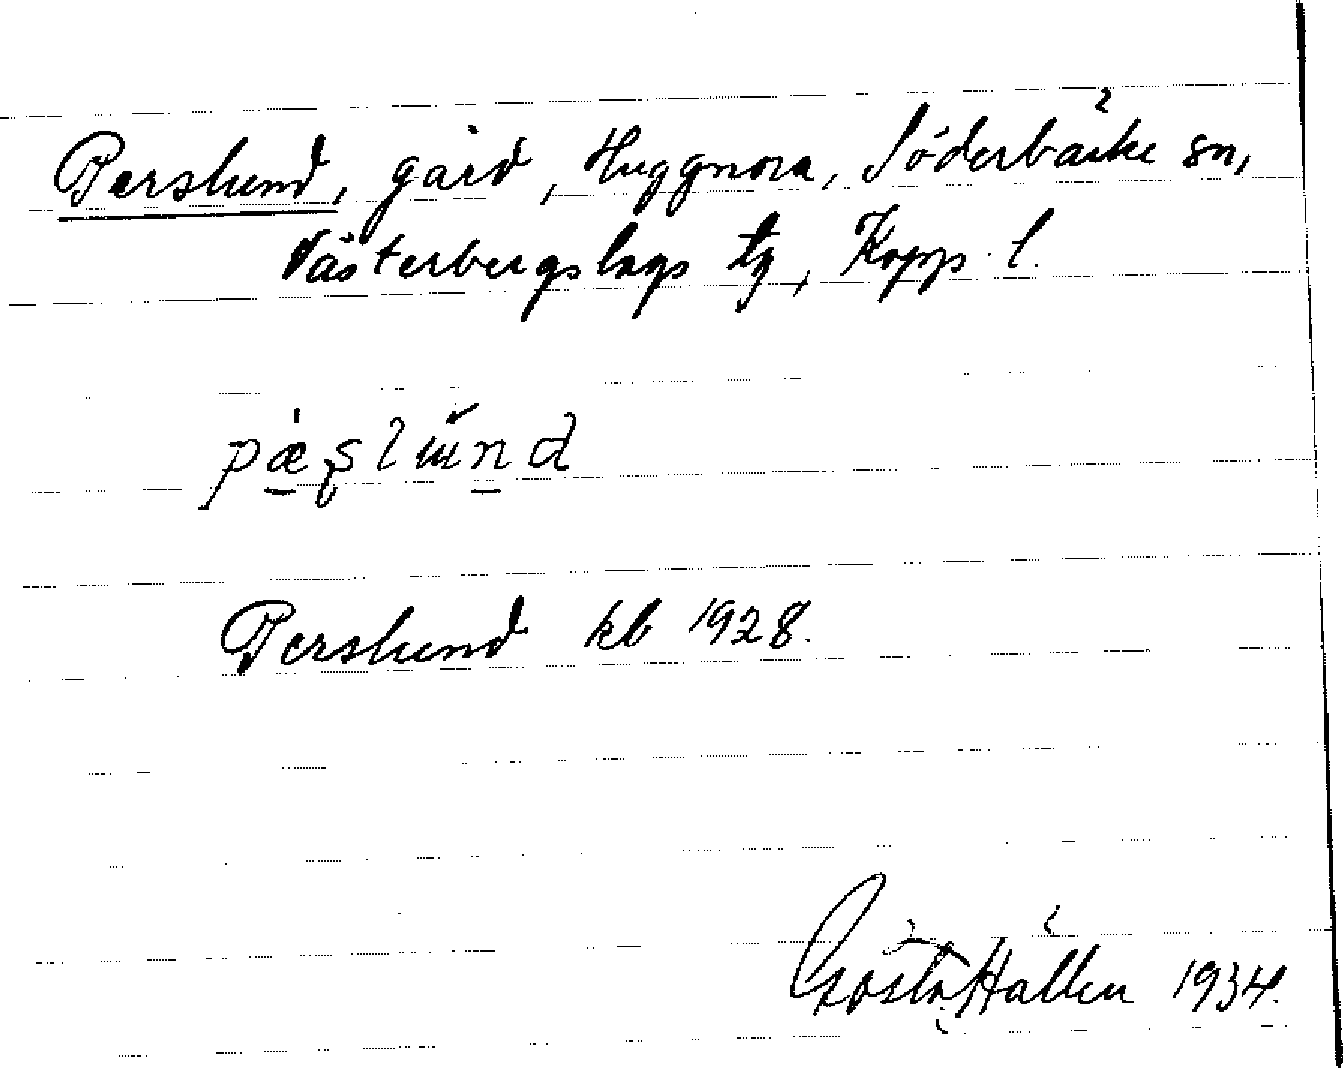 Perslund, gård, Huggnora, Söderbärke sn,
Västerbergslags tg, Kopp. l.
Perslund kb 1928.
Gösta Hallén 1934.